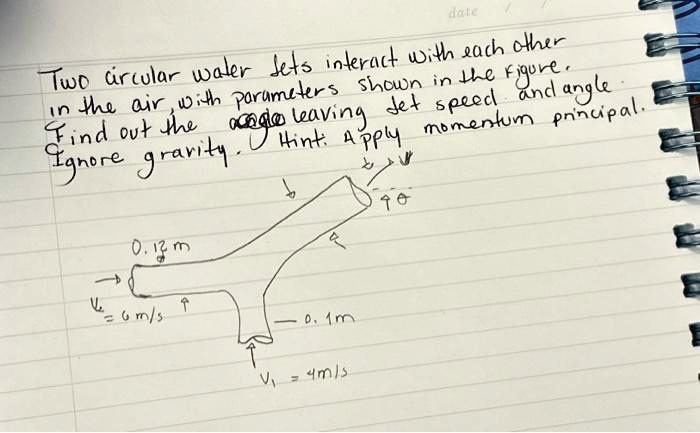 date / /
Two circular water Jets interact with each other
in the air, with parameters shown in the Figure.
Find out the leaving Jet speed and angle.
Ignore gravity. Hint: Apply momentum principal.
V
θ
0.12 m
= 6 m/s
0.1m
V1 = 4m/s